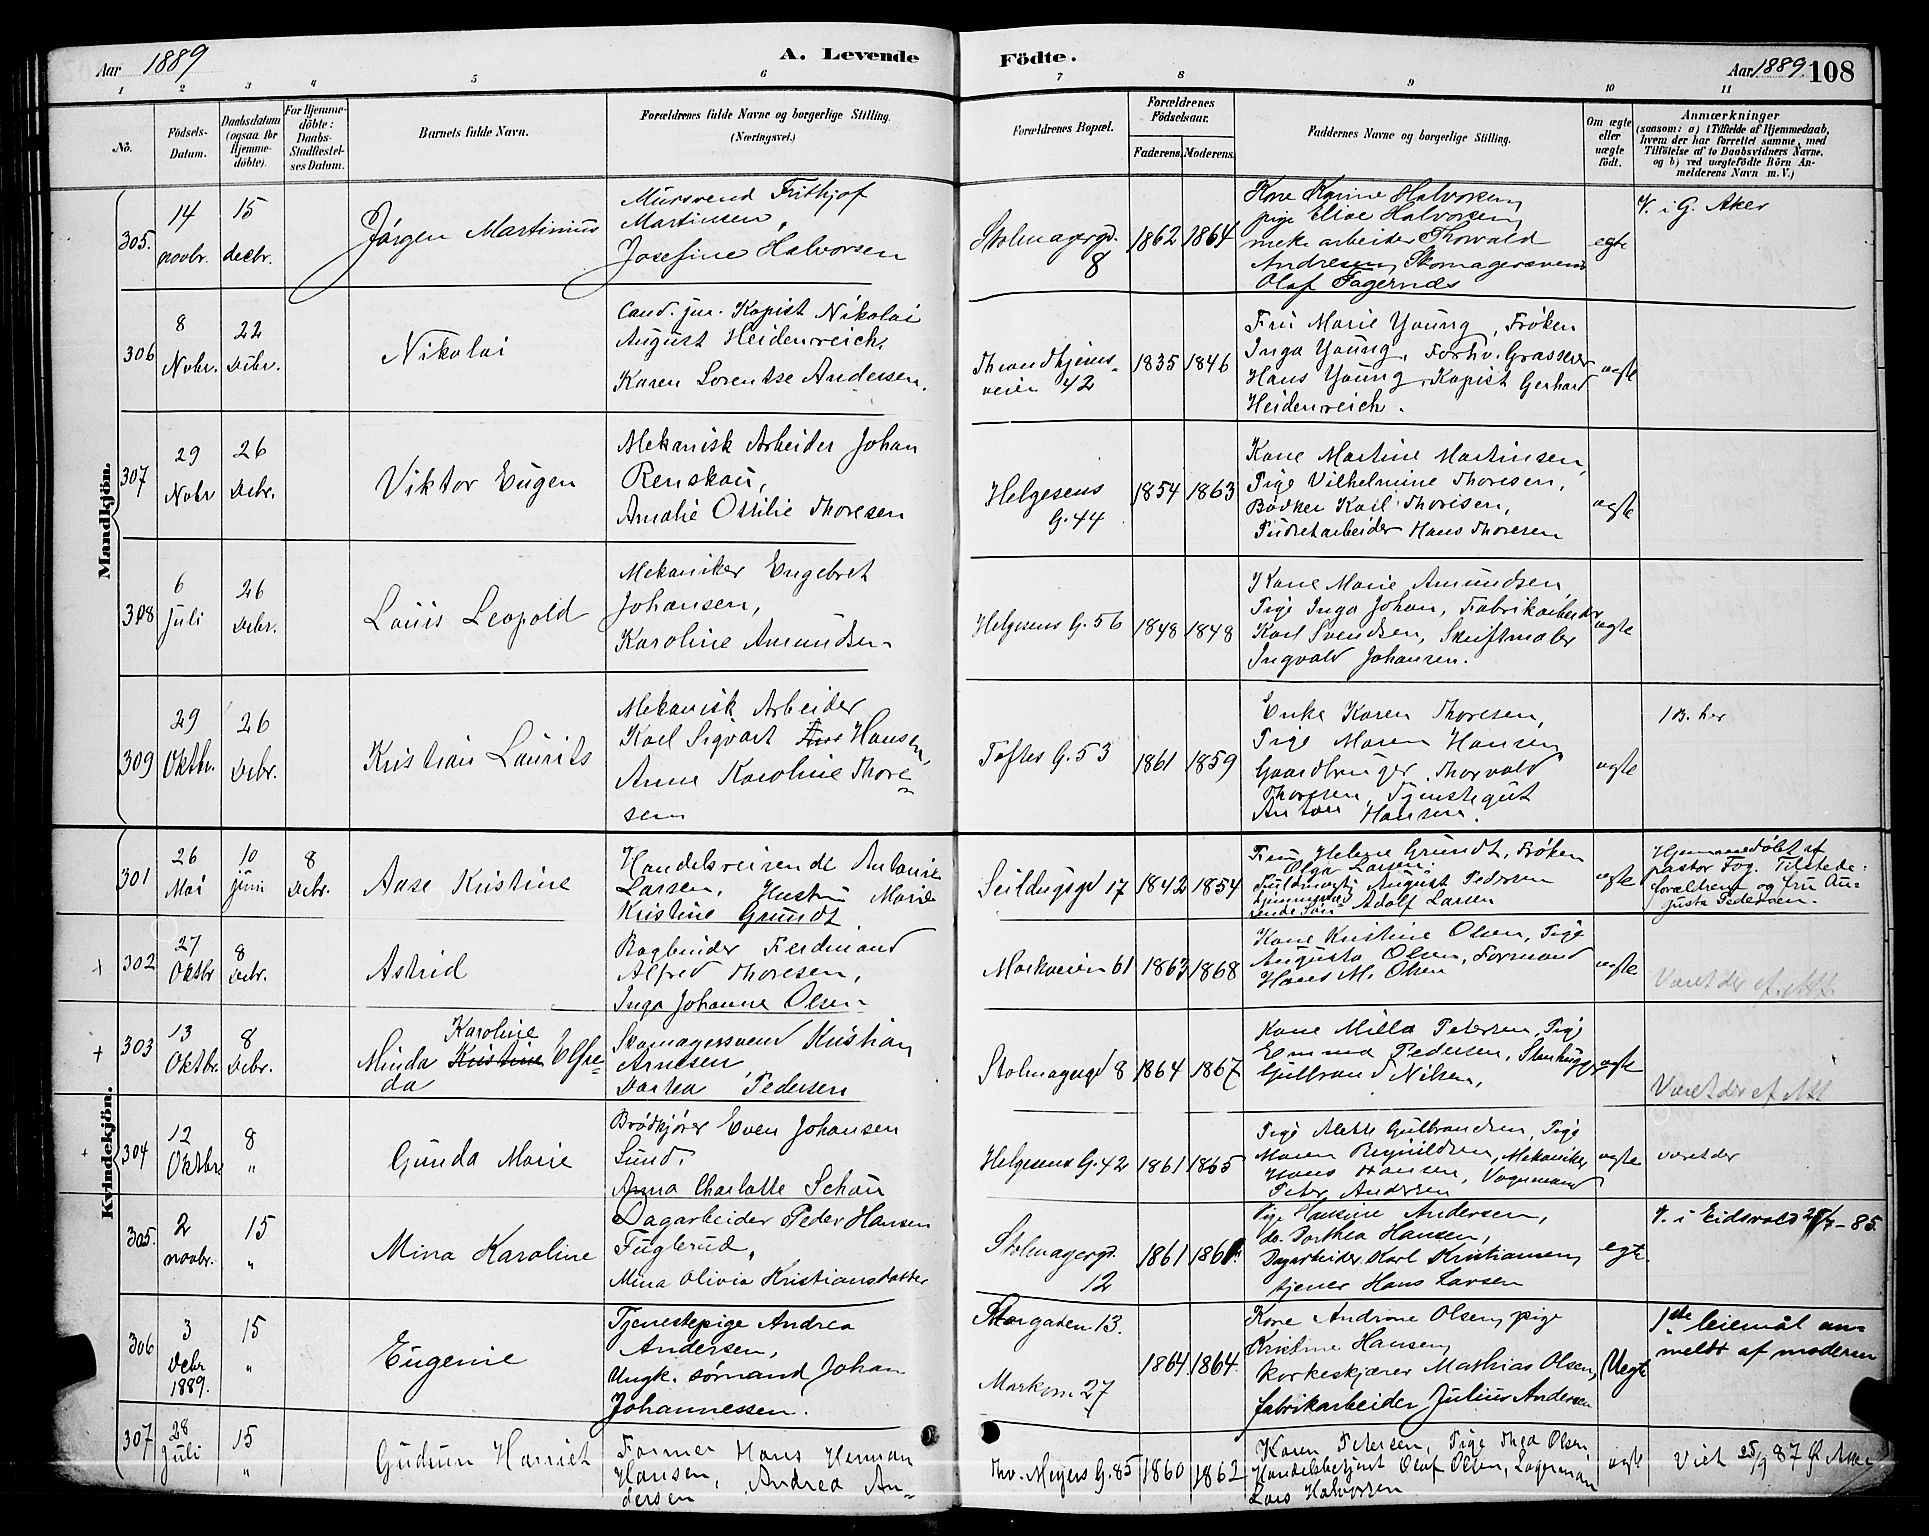 Aar 1889
A. Levende
Födte.
Aar 1889 108
1 2 3 4 5 6 7 8 9 10 11
No.
Födsels-Datum.
Daabsdatum (ogsaa for Hjemme-döbte).
For Hjemme-döbte: Daabs-Stadfæstel-ses Datum.
Barnets fulde Navn.
Forældrenes fulde Navne og borgerlige Stilling. (Næringsvei.)
Forældrenes Bopæl.
Forældrenes Födselsaar.
Faderens. Moderens.
Faddernes Navne og borgerlige Stilling.
Om ægte eller uægte födt.
Anmærkninger
(saasom: a) i Tilfælde af Hjemmedaab, hvem der har forrettet samme, med Tilföielse af to Daabsvidners Navne. og b) ved uægtefödte Börn Anmelderens Navn m. V.)
Mandkjön.
305. 14 novbr. 15 decbr. Jörgen Martinius
Mursvend Frithjof
Martinsen,
Josefine Halvorsen
Stolmagergd. 8 1862 1864
Kone Karine Halvorsen,
pige Elise Halvorsen,
mek arbeider Thorvald
Andresen, Skomagersvend
Olaf Fagernæs
egte
V. i G. Aker
306 8 Novbr. 22 Decbr. Nikolai
Cand. jur. Kopist Nikolai
August Heidenreich,
Karen Lorentse Andersen.
Throndhjems-
veien 42 1835 1846
Fru Marie Young, Frøken
Inga Young, Forhv. Grasserer
Hans Young, Kopist Gerhard
Heidenreich.
ægte
307 29 Novbr 26 Debr. Viktor Eugen
Mekanisk Arbeider Johan
Renskou,
Amalie Ottilie Thoresen
Helgesens
G. 44 1854 1863
Kone Martine Martinsen,
Pige Vilhelmine Thoresen,
Bødker Karl Thoresen,
Pudretarbeider Hans Thoresen
ægte
308 6 Juli 26 Debr. Louis Leopold
Mekaniker Engebret
Johansen,
Karoline Amundsen
Helgesens G. 56 1848 1848
Kone Marie Amundsen,
Pige Inga Johan, Fabrikarbeider
Karl Svendsen, Skriftmaler
Ingvald Johansen.
ægte
309 29 Oktbr. 26 Debr. Kristian Laurits
Mekanisk Arbeider
Karl Sigvart Hansen,
Anne Karoline Thore-
sen
Toftes G. 53 1861 1859
Enke Karen Thoresen,
Pige Maren Hansen
Gaardbruger Thorvald
Thoresen, Tjenestegut
Anton Hansen.
ægte
1 B. her
Kvindekjön.
301 26 Mai 10 juni 8 Debr. Aase Kristine
Handelsreisende Antonie
Larsen, Hustru Marie
Kristine Grundt
Seildugsgd 17 1842 1854
Fru Helene Grundt, Frøken
Olga Larsen,
Fuldmægt. August Pedersen
Adolf Larsen
ægte
Hjemmedøbt af
pastor Fog. Tilstede:
forældrene og fru Au-
gusta Pedersen.
+ 302 27 Oktbr 8 Debr. Astrid
Bogbinder Ferdinand
Alfred Thoresen,
Inga Johanne Olsen
Markveien 61 1863 1868
Kone Kristine Olsen, Pige
Augusta Olsen, Formand
Hans M. Olsen
ægte
Været der
+ 303 13 Oktbr. 8 Debr.
Karoline
Minda Kristine Elfre-
da
Skomagersvend Kristian
Arnesen,
Dorthea Pedersen
Stolmagergd 8 1864 1867
Kone Milla Petersen, Pige
Emma Pedersen, Stenhugger
Gulbrand Nilsen,
ægte
Været der
+ 304 12 Oktbr 8 " Gunda Marie
Brødkjører Even Johansen
Lund,
Anna Charlotte Schou
Helgesens G. 42 1861 1865
Pige Mette Gulbrandsen, Pige
Maren Reynildsen, Mekaniker
Hans Hansen, Vognmand
Peter Andersen
ægte
været der
305. 2 novbr. 15 " Mina Karoline
Dagarbeider Peder Hansen
Fuglerud,
Mina Olivia Kristiansdatter
Stolmagergd.
12 1861 1861
Pige Hansine Andersen,
do. Dorthea Hansen,
Dagarbeider Karl Kristiansen,
tjener Hans Larsen
egte.
V. i Eidsvold - 85.
306 3 Debr 1889. 15 " Eugenie
Tjenestepige Andrea
Andersen,
Ungk. sømand Johan
Johannessen.
Storgaden 13.
Markvn 27 1864 1864.
Kone Andrine Olsen, pige
Kristine Hansen,
korkeskjærer Mathias Olsen,
fabrikarbeider Julius Andersen
Uegte
1ste leiemål an-
meldt af moderen
307 28 Juli 15 " Gudrun Harriet
Former Hans Herman
Hansen, Andrea An-
dersen
Thv. Meyers G. 85 1860 1862
Karen Petersen, Pige Inga Olsen
Handelsbetjent Olaf Olsen, Lagermand
Lars Halvorsen
ægte
Viet 25/9 87 Aker